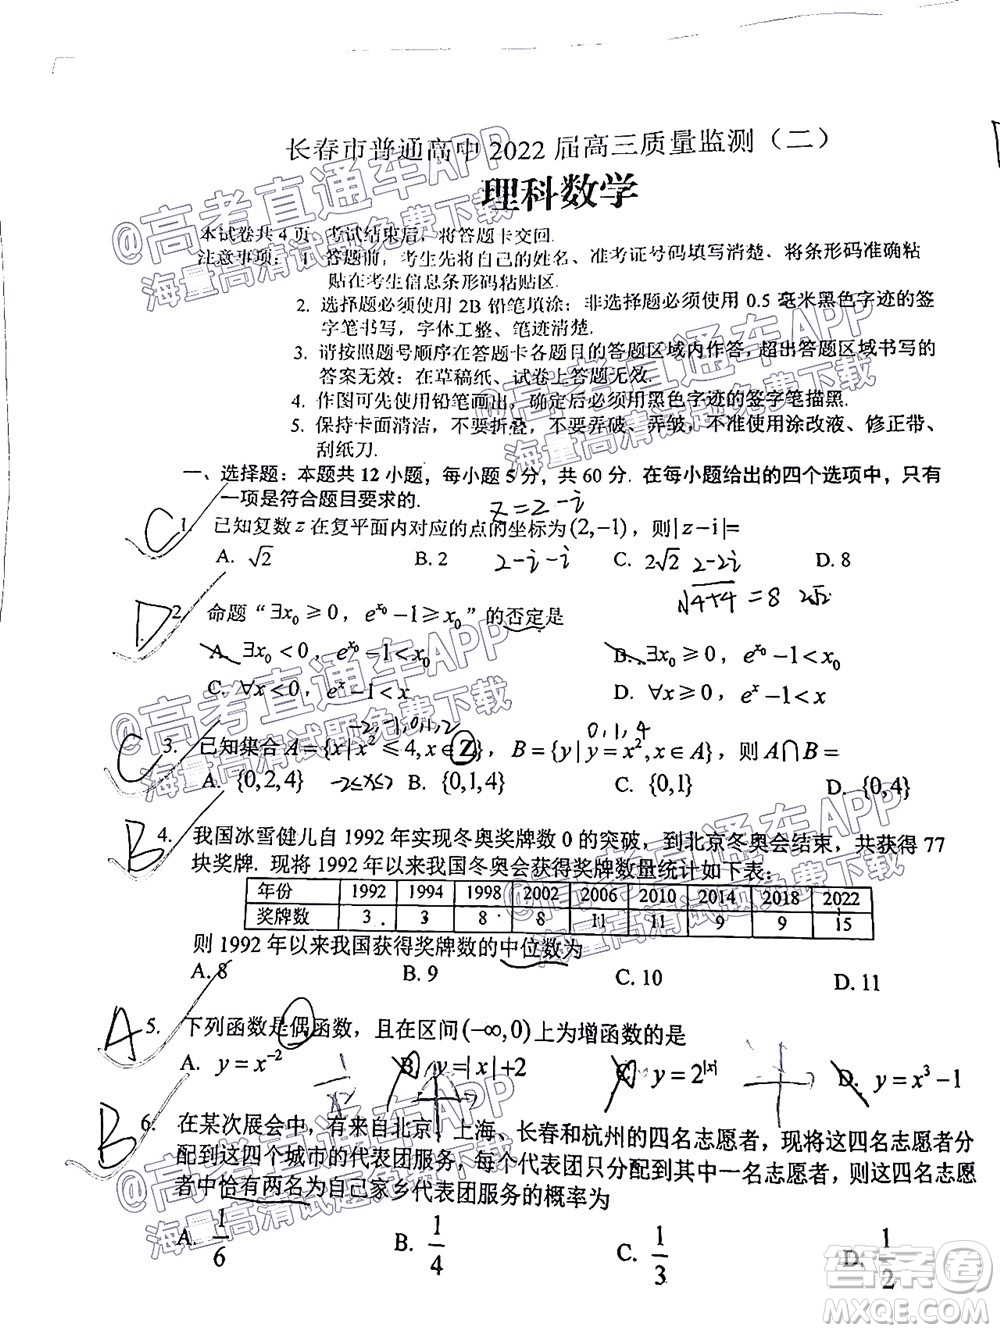 长春市普通高中 2022 届高三质量监测（二）
理科数学
本试卷共 4 页. 考试结束后，将答题卡交回.
注意事项： 1. 答题前，考生先将自己的姓名、准考证号码填写清楚，将条形码准确粘
贴在考生信息条形码粘贴区.
2. 选择题必须使用 2B 铅笔填涂；非选择题必须使用 0.5 毫米黑色字迹的签
字笔书写，字体工整、笔迹清楚.
3. 请按照题号顺序在答题卡各题目的答题区域内作答，超出答题区域书写的
答案无效；在草稿纸、试卷上答题无效.
4. 作图可先使用铅笔画出，确定后必须用黑色字迹的签字笔描黑.
5. 保持卡面清洁，不要折叠，不要弄破、弄皱，不准使用涂改液、修正带、
刮纸刀.
一、选择题：本题共 12 小题，每小题 5 分，共 60 分. 在每小题给出的四个选项中，只有
一项是符合题目要求的.
z=2-i
C 1. 已知复数 z 在复平面内对应的点的坐标为 (2,-1)，则 |z-i|=
A. √2 B. 2 2-i-i C. 2√2 2-2i D. 8
√4+4 = 8 2√2
D 2. 命题“∃x₀ ≥ 0， e^{x₀} -1 ≥ x₀”的否定是
A. ∃x₀ < 0，e^{x₀} -1 < x₀ B. ∃x₀ ≥ 0，e^{x₀} -1 < x₀
C. ∀x < 0，e^x -1 < x D. ∀x ≥ 0，e^x -1 < x
-2,-1,0,1,2 0,1,4
C 3. 已知集合 A={x|x² ≤ 4, x∈Z}， B={y|y=x², x∈A}，则 A∩B=
A. {0,2,4} -2≤x≤2 B. {0,1,4} C. {0,1} D. {0,4}
B 4. 我国冰雪健儿自 1992 年实现冬奥奖牌数 0 的突破，到北京冬奥会结束，共获得 77
块奖牌. 现将 1992 年以来我国冬奥会获得奖牌数量统计如下表：
年份 1992 1994 1998 2002 2006 2010 2014 2018 2022
奖牌数 3 3 8 8 11 11 9 9 15
则 1992 年以来我国获得奖牌数的中位数为
A. 8 B. 9 C. 10 D. 11
A 5. 下列函数是偶函数，且在区间 (-∞,0) 上为增函数的是
A. y=x⁻² B. y=|x|+2 C. y=2^{|x|} D. y=x³-1
B 6. 在某次展会中，有来自北京、上海、长春和杭州的四名志愿者，现将这四名志愿者分
配到这四个城市的代表团服务，每个代表团只分配到其中一名志愿者，则这四名志愿
者中恰有两名为自己家乡代表团服务的概率为
A. 1/6 B. 1/4 C. 1/3 D. 1/2
@高考直通车APP
海量高清试题免费下载
@高考直通车APP
海量高清试题免费下载
@高考直通车APP
海量高清试题免费下载
@高考直通车APP
海量高清试题免费下载
@高考直通车APP
海量高清试题免费下载
答案圈
MXQE.COM